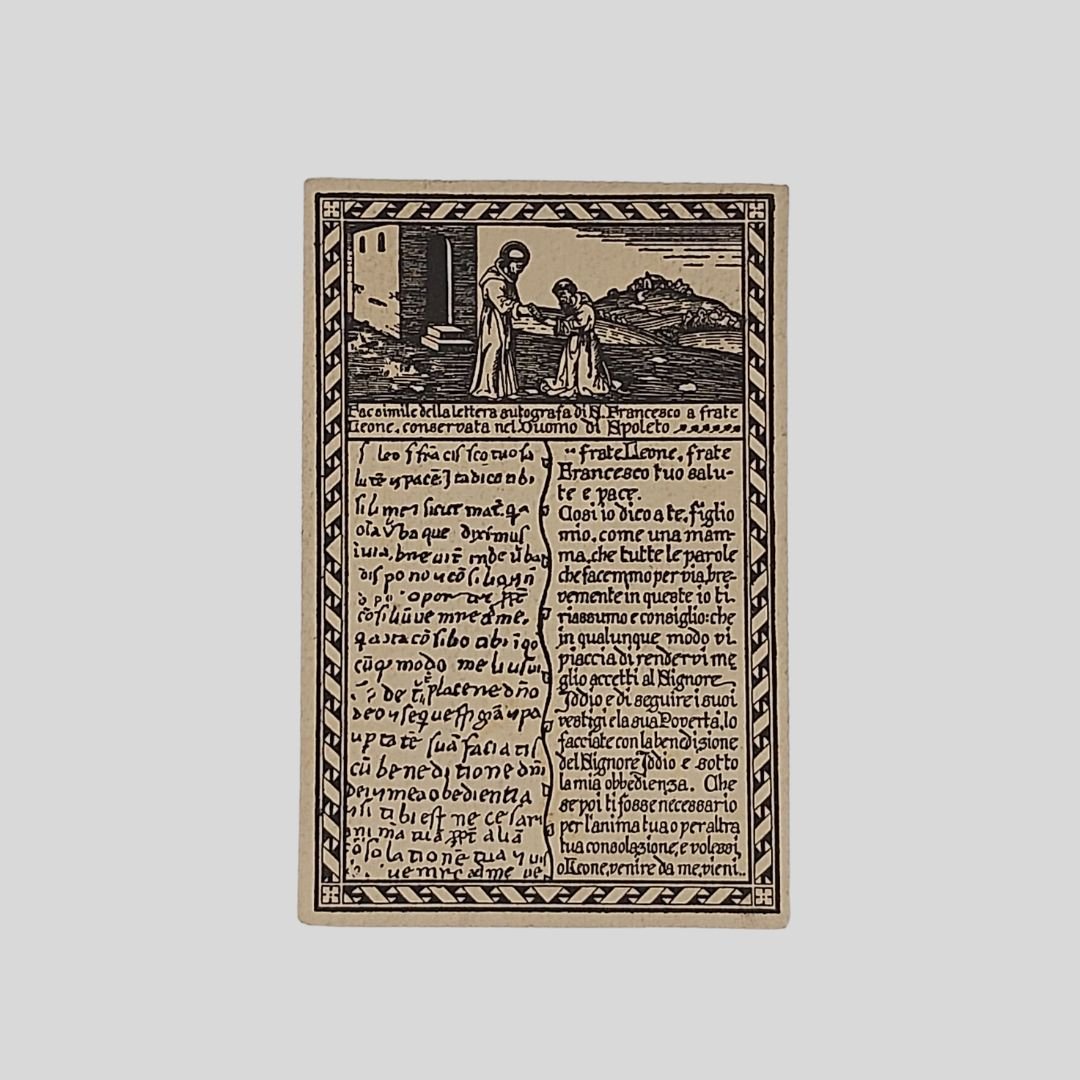 Facsimile della lettera autografa di S. Francesco a frate
Leone, conservata nel Duomo di Spoleto
f leo f frācissco tuo sa
lutē ⁊ pacē Ita dico tibi
fili mei sicut
que diximus
i uia,
dispono ⁊ cōsiliū
oportet
cōsiliū venire ad me,
q̄ ita cōsilio tibi ī q̄o
cūq modo melius
de placere dño
deo ⁊ seque
uptatē suā faciatis
cū beneditione dñi
dei ⁊ mea obedientia
tibi est necesari
animā tuā aliā
cōsolationē tuā ⁊ ui
ad me
"frate Leone, frate
Francesco tuo salu-
te e pace.
Cosi io dico a te, figlio
mio, come una mam-
ma, che tutte le parole
che facemmo per via, bre-
vemente in queste io ti
riassumo e consiglio: che
in qualunque modo vi
piaccia di rendervi me
glio accetti al Signore
Iddio e di seguire i suoi
vestigi e la sua Povertà, lo
facciate con la benedisione
del Signore Iddio e sotto
la mia obbedienza. Che
se poi ti fosse necessario
per l'anima tua o per altra
tua consolazione, e volessi,
o Leone, venire da me, vieni..